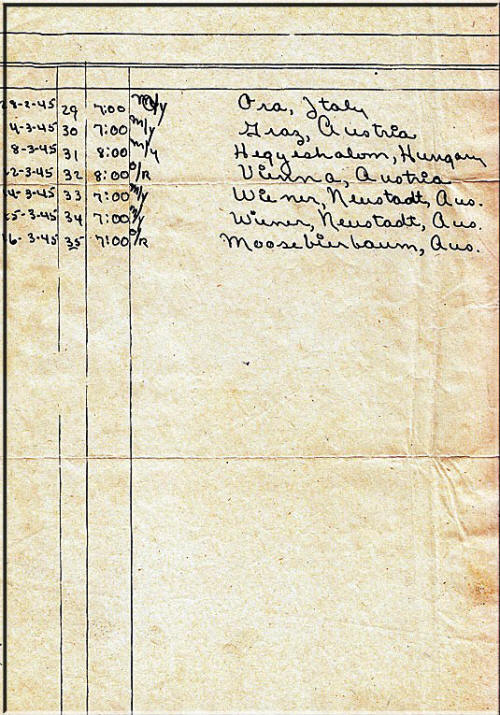 28-2-45 29 7:00 M/Y Ora, Italy
4-3-45 30 7:00 M/Y Graz, Austria
8-3-45 31 8:00 M/Y Hegyeshalom, Hungary
2-3-45 32 8:00 O/R Vienna, Austria
4-3-45 33 7:00 M/Y Wiener, Neustadt, Aus.
15-3-45 34 7:00 M/Y Wiener, Neustadt, Aus.
16-3-45 35 7:00 O/R Moosebierbaum, Aus.